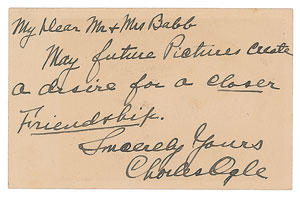 My Dear Mr & Mrs Babb
May future Pictures create
a desire for a closer
Friendship.
Sincerely Yours
Charles Ogle